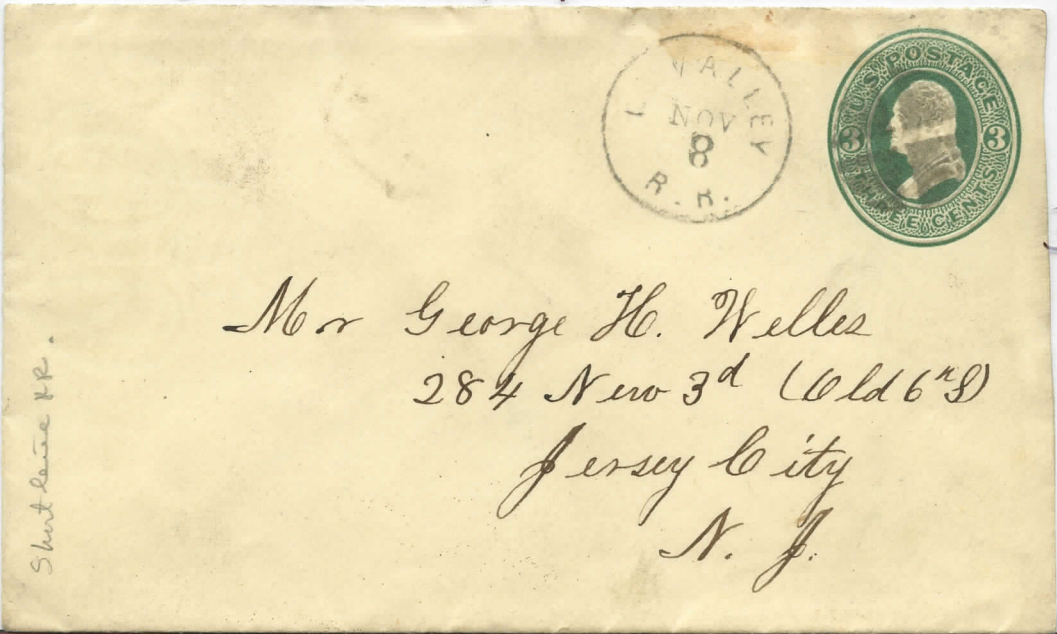 L VALLEY
NOV
8
R.R.
U.S. POSTAGE
3 3
THREE CENTS
Mr George H. Welles
284 New 3d (Old 6th S)
Jersey City
N. J.
Short Line RR.